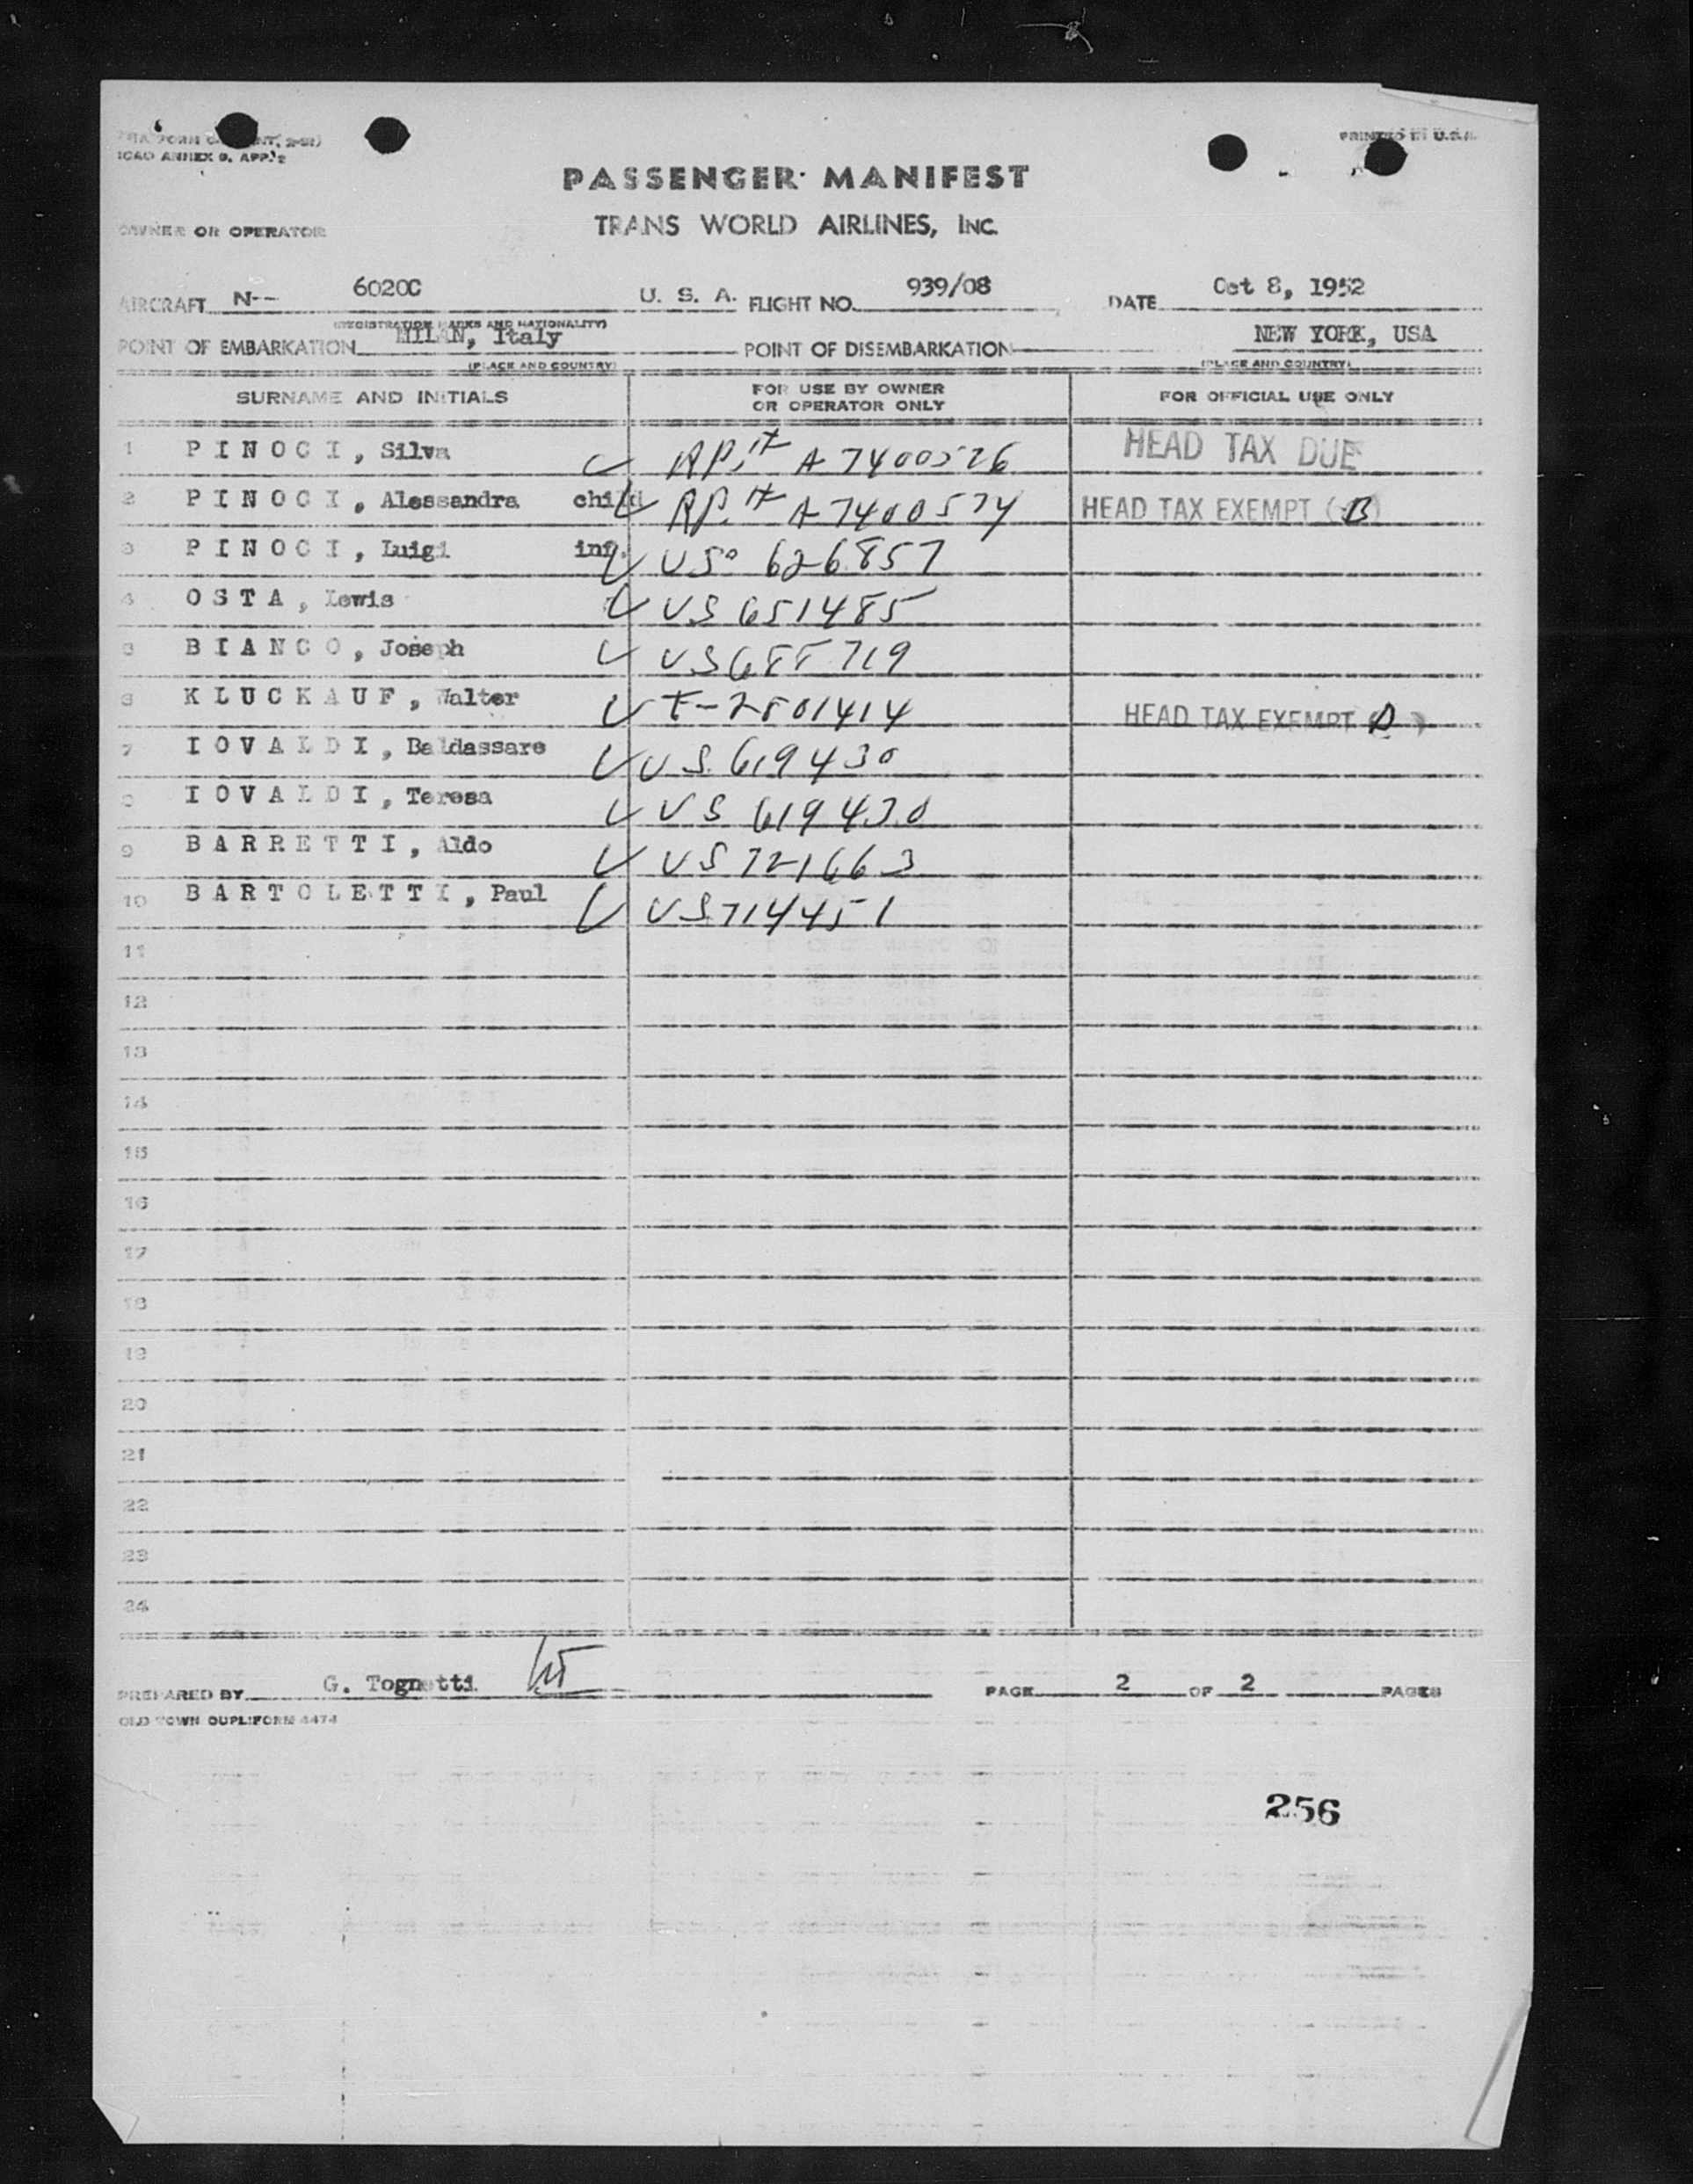 ICAO ANNEX 9, APP. 2
PRINTED IN U.S.A.
PASSENGER MANIFEST
OWNER OR OPERATOR
TRANS WORLD AIRLINES, INC.
AIRCRAFT N-- 6020C U. S. A. FLIGHT NO. 939/08 DATE Oct 8, 1952
(REGISTRATION MARKS AND NATIONALITY)
POINT OF EMBARKATION MILAN, Italy POINT OF DISEMBARKATION NEW YORK, USA
(PLACE AND COUNTRY) (PLACE AND COUNTRY)
SURNAME AND INITIALS FOR USE BY OWNER OR OPERATOR ONLY FOR OFFICIAL USE ONLY
1 PINOCI, Silva A7400576 HEAD TAX DUE
2 PINOCI, Alessandra child A7400574 HEAD TAX EXEMPT (B)
3 PINOCI, Luigi inf. US 626857
4 OSTA, Lewis US 651485
5 BIANCO, Joseph US 688719
6 KLUCKAUF, Walter E-2801414 HEAD TAX EXEMPT
7 IOVALDI, Baldassare US 619430
8 IOVALDI, Teresa US 619430
9 BARRETTI, Aldo US 721663
10 BARTOLETTI, Paul US 714451
11
12
13
14
15
16
17
18
19
20
21
22
23
24
PREPARED BY G. Tognetti PAGE 2 OF 2 PAGES
OLD TOWN DUPLIFORM 4474
256